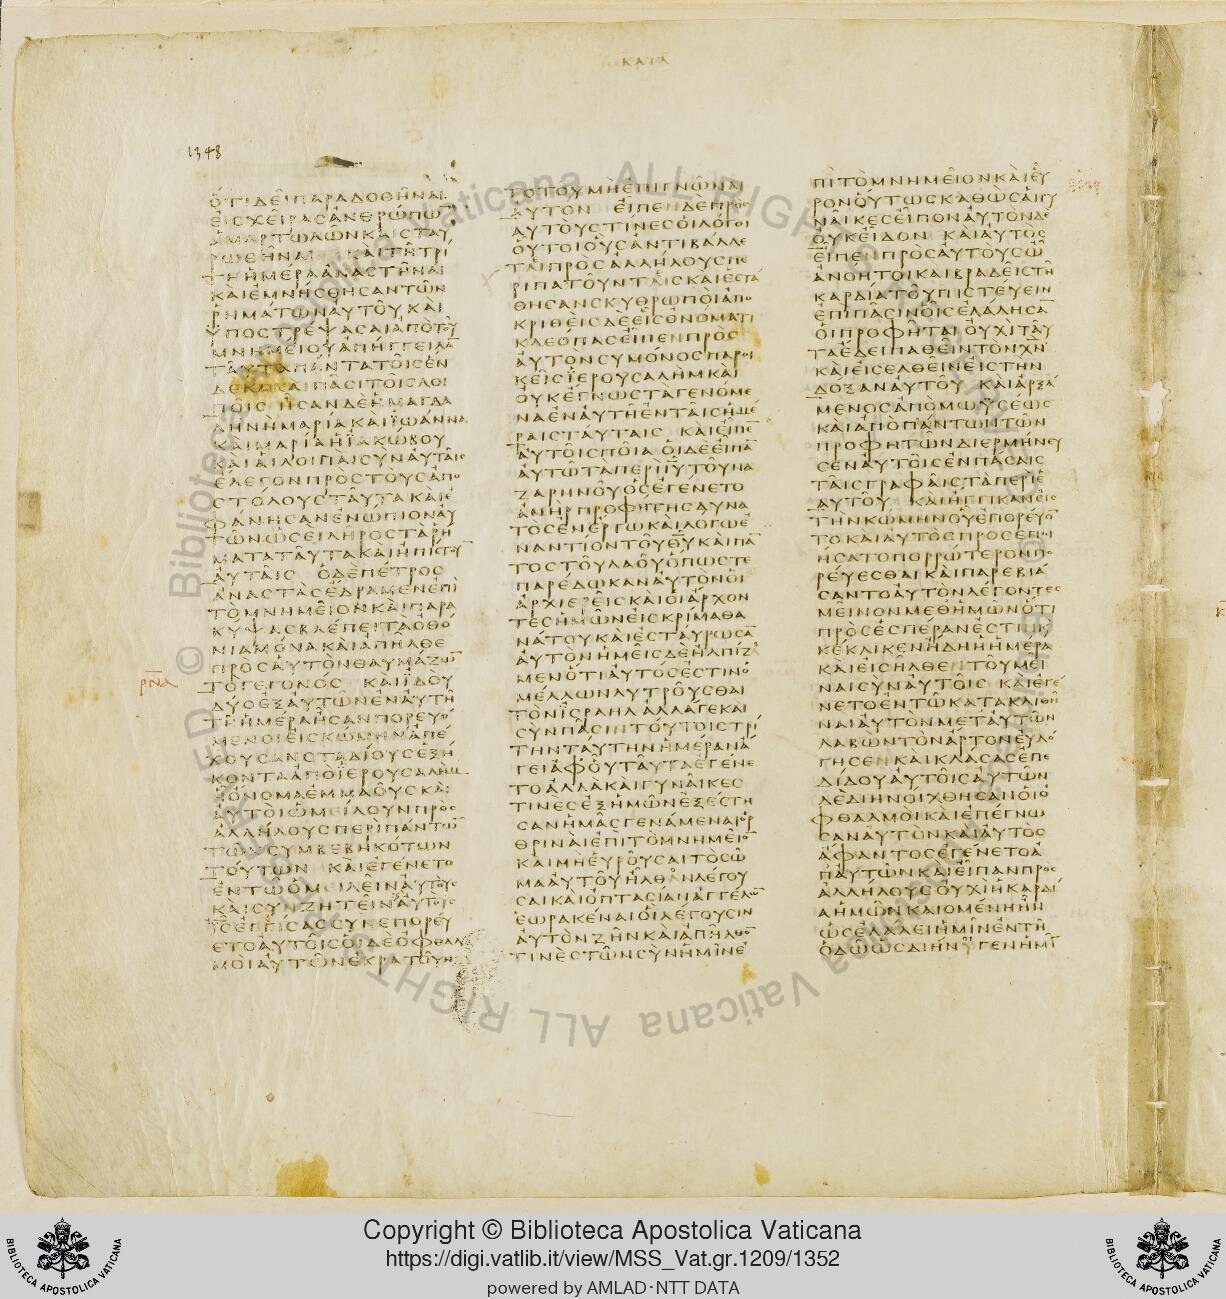 ΚΑΤΑ
1348
ΟΤΙΔΕΙΠΑΡΑΔΟΘΗΝΑΙ
ΕΙϹΧΕΙΡΑϹΑΝΘΡΩΠΩ̅
ΑΜΑΡΤΩΛΩΝΚΑΙϹΤΑΥ
ΡΩΘΗΝΑΙ ΚΑΙΤΗΤΡΙ
ΤΗΗΜΕΡΑΑΝΑϹΤΗΝΑΙ
ΚΑΙΕΜΝΗϹΘΗϹΑΝΤΩΝ
ΡΗΜΑΤΩΝΑΥΤΟΥ ΚΑΙ
ΥΠΟϹΤΡΕΨΑϹΑΙΑΠΟΤΟΥ
ΜΝΗΜΕΙΟΥΑΠΗΓΓΕΙΛΑ̅
ΤΑΥΤΑΠΑΝΤΑΤΟΙϹΕΝ
ΔΕΚΑΚΑΙΠΑϹΙΤΟΙϹΛΟΙ
ΠΟΙϹ ΗϹΑΝΔΕΗΜΑΓΔΑ
ΛΗΝΗΜΑΡΙΑΚΑΙΪΩΑΝΝΑ
ΚΑΙΜΑΡΙΑΗΪΑΚΩΒΟΥ
ΚΑΙΑΙΛΟΙΠΑΙϹΥΝΑΥΤΑΙϹ
ΕΛΕΓΟΝΠΡΟϹΤΟΥϹΑΠΟ
ϹΤΟΛΟΥϹΤΑΥΤΑΚΑΙΕ
ΦΑΝΗϹΑΝΕΝΩΠΙΟΝΑΥ
ΤΩΝΩϹΕΙΛΗΡΟϹΤΑΡΗ
ΜΑΤΑΤΑΥΤΑΚΑΙΗΠΙϹΤΟΥ̅
ΑΥΤΑΙϹ ΟΔΕΠΕΤΡΟϹ
ΑΝΑϹΤΑϹΕΔΡΑΜΕΝΕΠΙ
ΤΟΜΝΗΜΕΙΟΝΚΑΙΠΑΡΑ
ΚΥΨΑϹΒΛΕΠΕΙΤΑΟΘΟ
ΝΙΑΜΟΝΑΚΑΙΑΠΗΛΘΕ
ΠΡΟϹΑΥΤΟΝΘΑΥΜΑΖΩ̅
ΡΝΑ
ΤΟΓΕΓΟΝΟϹ ΚΑΙΪΔΟΥ
ΔΥΟΕΞΑΥΤΩΝΕΝΑΥΤΗ
ΤΗΗΜΕΡΑΗϹΑΝΠΟΡΕΥΟ
ΜΕΝΟΙΕΙϹΚΩΜΗΝΑΠΕ
ΧΟΥϹΑΝϹΤΑΔΙΟΥϹΕΞΗ
ΚΟΝΤΑΑΠΟΪΕΡΟΥϹΑΛΗΜ
ΗΟΝΟΜΑΕΜΜΑΟΥϹΚΑΙ
ΑΥΤΟΙΩΜΕΙΛΟΥΝΠΡΟϹ
ΑΛΛΗΛΟΥϹΠΕΡΙΠΑΝΤΩ̅
ΤΩΝϹΥΜΒΕΒΗΚΟΤΩΝ
ΤΟΥΤΩΝ ΚΑΙΕΓΕΝΕΤΟ
ΕΝΤΩΟΜΕΙΛΕΙΝΑΥΤΟΥϹ
ΚΑΙϹΥΝΖΗΤΕΙΝΑΥΤΟΙϹ
Ι̅Ϲ̅ΕΓΓΙϹΑϹϹΥΝΕΠΟΡΕΥ
ΕΤΟΑΥΤΟΙϹΟΙΔΕΟΦΘΑΛ
ΜΟΙΑΥΤΩΝΕΚΡΑΤΟΥΝ
ΤΟΤΟΥΜΗΕΠΙΓΝΩΝΑΙ
ΑΥΤΟΝ ΕΙΠΕΝΔΕΠΡΟϹ
ΑΥΤΟΥϹΤΙΝΕϹΟΙΛΟΓΟΙ
ΟΥΤΟΙΟΥϹΑΝΤΙΒΑΛΛΕ
ΤΑΙΠΡΟϹΑΛΛΗΛΟΥϹΠΕ
ΡΙΠΑΤΟΥΝΤΑΙϹΚΑΙΕϹΤΑ
ΘΗϹΑΝϹΚΥΘΡΩΠΟΙΑΠΟ
ΚΡΙΘΕΙϹΔΕΕΙϹΟΝΟΜΑΤΙ
ΚΛΕΟΠΑϹΕΙΠΕΝΠΡΟϹ
ΑΥΤΟΝϹΥΜΟΝΟϹΠΑΡΟΙ
ΚΕΙϹΪΕΡΟΥϹΑΛΗΜΚΑΙ
ΟΥΚΕΓΝΩϹΤΑΓΕΝΟΜΕ
ΝΑΕΝΑΥΤΗΕΝΤΑΙϹΗΜΕ
ΡΑΙϹΤΑΥΤΑΙϹ ΚΑΙΕΙΠΕ̅
ΑΥΤΟΙϹΠΟΙΑ ΟΙΔΕΕΙΠΑ̅
ΑΥΤΩΤΑΠΕΡΙΙ̅Υ̅ΤΟΥΝΑ
ΖΑΡΗΝΟΥΟϹΕΓΕΝΕΤΟ
ΑΝΗΡΠΡΟΦΗΤΗϹΔΥΝΑ
ΤΟϹΕΝΕΡΓΩΚΑΙΛΟΓΩΕ
ΝΑΝΤΙΟΝΤΟΥΘ̅Υ̅ΚΑΙΠΑ̅
ΤΟϹΤΟΥΛΑΟΥΟΠΩϹΤΕ
ΠΑΡΕΔΩΚΑΝΑΥΤΟΝΟΙ
ΑΡΧΙΕΡΕΙϹΚΑΙΟΙΑΡΧΟΝ
ΤΕϹΗΜΩΝΕΙϹΚΡΙΜΑΘΑ
ΝΑΤΟΥΚΑΙΕϹΤΑΥΡΩϹΑ̅
ΑΥΤΟΝΗΜΕΙϹΔΕΗΛΠΙΖΟ
ΜΕΝΟΤΙΑΥΤΟϹΕϹΤΙΝΟ
ΜΕΛΛΩΝΛΥΤΡΟΥϹΘΑΙ
ΤΟΝΪϹΡΑΗΛΑΛΛΑΓΕΚΑΙ
ϹΥΝΠΑϹΙΝΤΟΥΤΟΙϹΤΡΙ
ΤΗΝΤΑΥΤΗΝΗΜΕΡΑΝΑ
ΓΕΙΑΦΟΥΤΑΥΤΑΕΓΕΝΕ
ΤΟΑΛΛΑΚΑΙΓΥΝΑΙΚΕϹ
ΤΙΝΕϹΕΞΗΜΩΝΕΞΕϹΤΗ
ϹΑΝΗΜΑϹΓΕΝΑΜΕΝΑΙΟΡ
ΘΡΙΝΑΙΕΠΙΤΟΜΝΗΜΕΙΟ̅
ΚΑΙΜΗΕΥΡΟΥϹΑΙΤΟϹΩ
ΜΑΑΥΤΟΥΗΛΘΑΝΛΕΓΟΥ
ϹΑΙΚΑΙΟΠΤΑϹΙΑΝΑΓΓΕΛΩ̅
ΕΩΡΑΚΕΝΑΙΟΙΛΕΓΟΥϹΙΝ
ΑΥΤΟΝΖΗΝΚΑΙΑΠΗΛΘΟ̅
ΤΙΝΕϹΤΩΝϹΥΝΗΜΙΝΕ
ΠΙΤΟΜΝΗΜΕΙΟΝΚΑΙΕΥ
ΡΟΝΟΥΤΩϹΚΑΘΩϹΑΙΓΥ
ΝΑΙΚΕϹΕΙΠΟΝΑΥΤΟΝΔΕ
ΟΥΚΕΙΔΟΝ ΚΑΙΑΥΤΟϹ
ΕΙΠΕΝΠΡΟϹΑΥΤΟΥϹΩ
ΑΝΟΗΤΟΙΚΑΙΒΡΑΔΕΙϹΤΗ
ΚΑΡΔΙΑΤΟΥΠΙϹΤΕΥΕΙΝ
ΕΠΙΠΑϹΙΝΟΙϹΕΛΑΛΗϹΑ̅
ΟΙΠΡΟΦΗΤΑΙ ΟΥΧΙΤΑΥ
ΤΑΕΔΕΙΠΑΘΕΙΝΤΟΝΧ̅Ν̅
ΚΑΙΕΙϹΕΛΘΕΙΝΕΙϹΤΗΝ
ΔΟΞΑΝΑΥΤΟΥ ΚΑΙΑΡΞΑ
ΜΕΝΟϹΑΠΟΜΩΥϹΕΩϹ
ΚΑΙΑΠΟΠΑΝΤΩΝΤΩΝ
ΠΡΟΦΗΤΩΝΔΙΕΡΜΗΝΕΥ
ϹΕΝΑΥΤΟΙϹΕΝΠΑϹΑΙϹ
ΤΑΙϹΓΡΑΦΑΙϹΤΑΠΕΡΙΕ
ΑΥΤΟΥ ΚΑΙΗΓΓΙΚΑΝΕΙϹ
ΤΗΝΚΩΜΗΝΟΥΕΠΟΡΕΥΟ̅
ΤΟΚΑΙΑΥΤΟϹΠΡΟϹΕΠΟΙ
ΗϹΑΤΟΠΟΡΡΩΤΕΡΟΝΠΟ
ΡΕΥΕϹΘΑΙΚΑΙΠΑΡΕΒΙΑ
ϹΑΝΤΟΑΥΤΟΝΛΕΓΟΝΤΕϹ
ΜΕΙΝΟΝΜΕΘΗΜΩΝΟΤΙ
ΠΡΟϹΕϹΠΕΡΑΝΕϹΤΙΝΚ
ΚΕΚΛΙΚΕΝΗΔΗΗΗΜΕΡΑ
ΚΑΙΕΙϹΗΛΘΕΝΤΟΥΜΕΙ
ΝΑΙϹΥΝΑΥΤΟΙϹ ΚΑΙΕΓΕ
ΝΕΤΟΕΝΤΩΚΑΤΑΚΛΙΘΗ
ΝΑΙΑΥΤΟΝΜΕΤΑΥΤΩΝ
ΛΑΒΩΝΤΟΝΑΡΤΟΝΕΥΛΟ
ΓΗϹΕΝΚΑΙΚΛΑϹΑϹΕΠΕ
ΔΙΔΟΥΑΥΤΟΙϹΑΥΤΩΝ
ΔΕΔΙΗΝΟΙΧΘΗϹΑΝΟΙΟ
ΦΘΑΛΜΟΙΚΑΙΕΠΕΓΝΩ
ϹΑΝΑΥΤΟΝΚΑΙΑΥΤΟϹ
ΑΦΑΝΤΟϹΕΓΕΝΕΤΟΑ
ΠΑΥΤΩΝΚΑΙΕΙΠΑΝΠΡΟϹ
ΑΛΛΗΛΟΥϹΟΥΧΙΗΚΑΡΔΙ
ΑΗΜΩΝΚΑΙΟΜΕΝΗΗΝ
ΩϹΕΛΑΛΕΙΗΜΙΝΕΝΤΗ
ΟΔΩΩϹΔΙΗΝΥΓΕΝΗΜΙ̅
© Biblioteca Apostolica Vaticana ALL RIGHTS RESERVED
Copyright © Biblioteca Apostolica Vaticana
https://digi.vatlib.it/view/MSS_Vat.gr.1209/1352
powered by AMLAD·NTT DATA
BIBLIOTECA APOSTOLICA VATICANA
BIBLIOTECA APOSTOLICA VATICANA